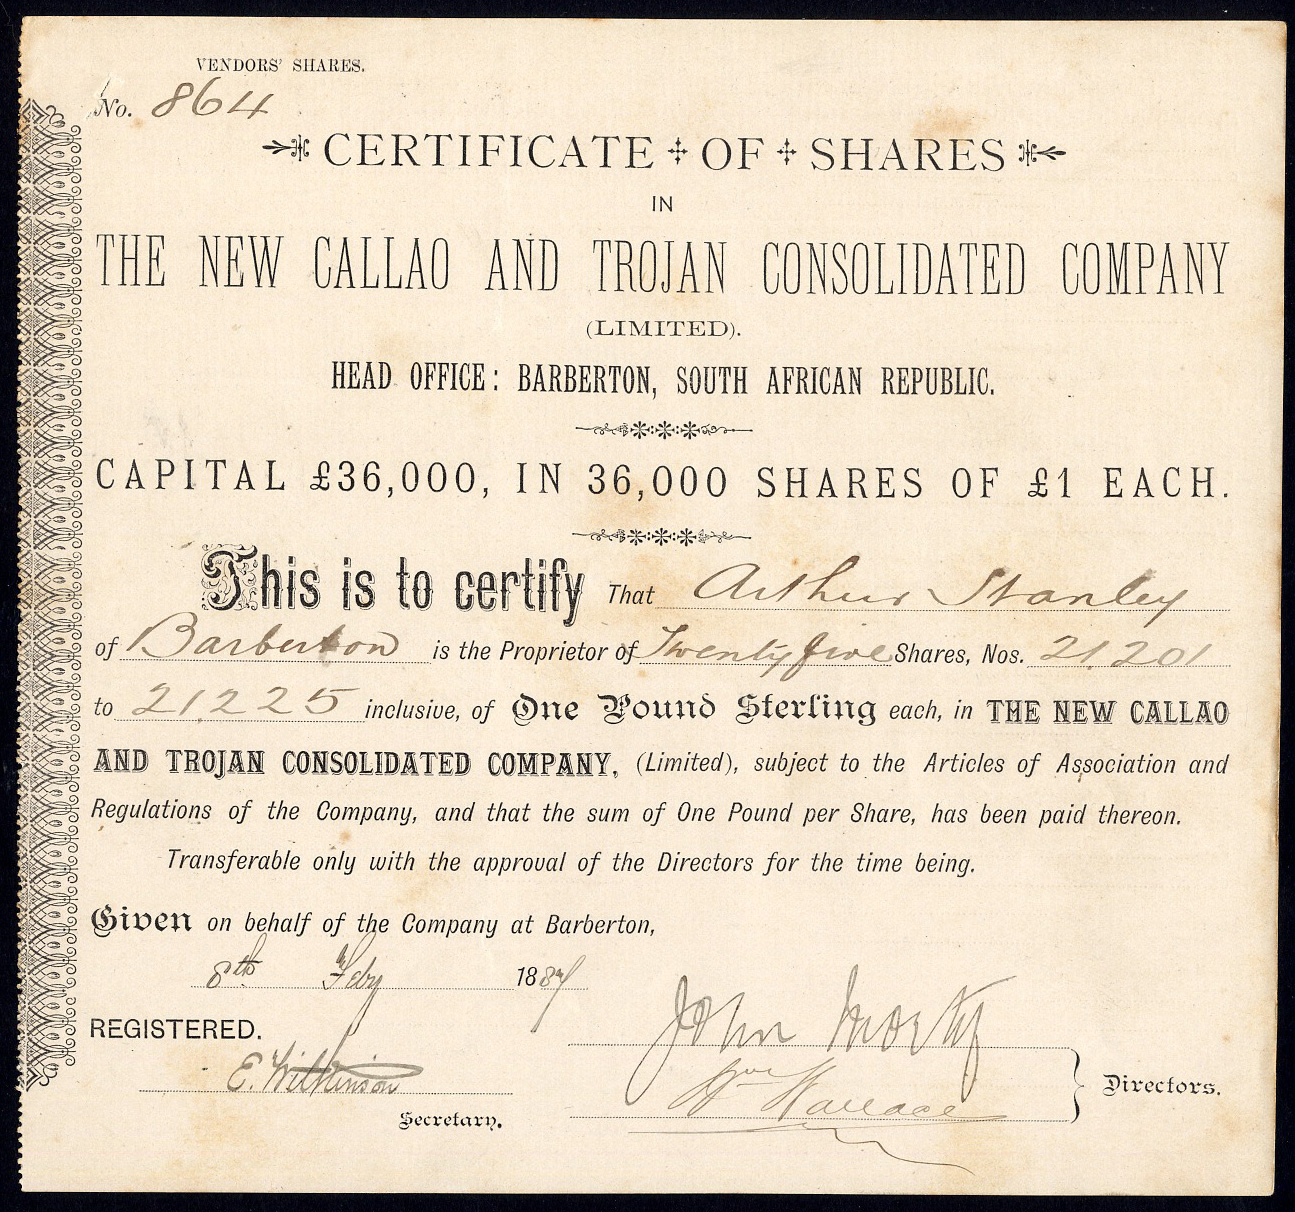 VENDORS' SHARES.
No. 864
CERTIFICATE OF SHARES
IN
THE NEW CALLAO AND TROJAN CONSOLIDATED COMPANY
(LIMITED).
HEAD OFFICE: BARBERTON, SOUTH AFRICAN REPUBLIC.
CAPITAL £36,000, IN 36,000 SHARES OF £1 EACH.
This is to certify That Arthur Stanley
of Barberton is the Proprietor of Twenty five Shares, Nos. 21,201
to 21,225 inclusive, of One Pound Sterling each, in THE NEW CALLAO
AND TROJAN CONSOLIDATED COMPANY, (Limited), subject to the Articles of Association and
Regulations of the Company, and that the sum of One Pound per Share, has been paid thereon.
Transferable only with the approval of the Directors for the time being.
Given on behalf of the Company at Barberton,
8th Feby 1887
John
REGISTERED.
E. Wilkinson
Wm Wallace
Directors.
Secretary.